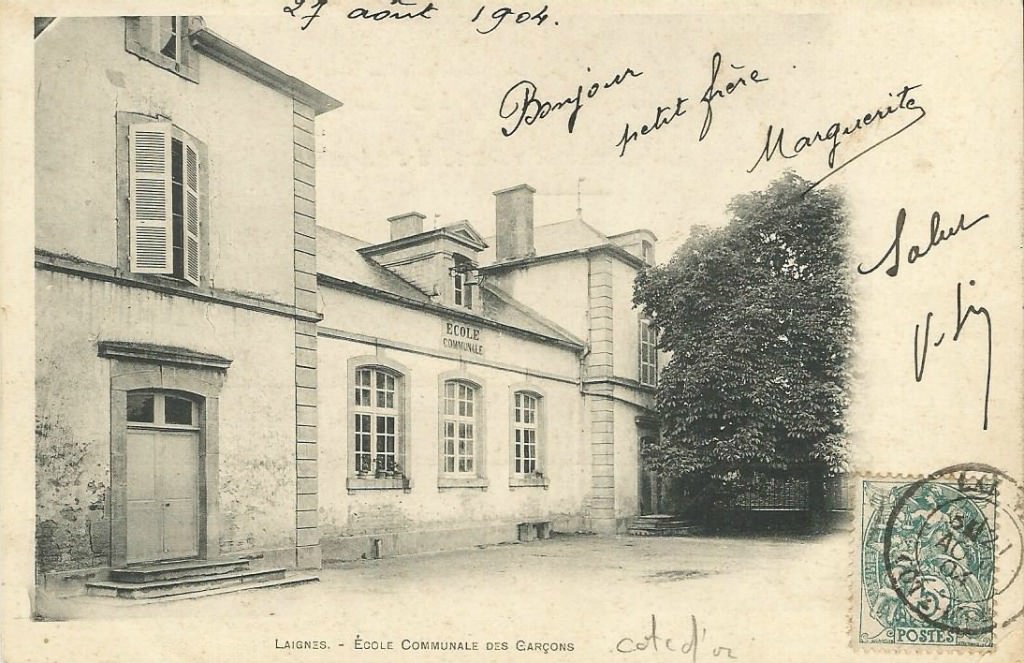 27 août 1904.
Bonjour
petit frère.
Marguerite
Salut
ÉCOLE
COMMUNALE
POSTES
LAIGNES. - ÉCOLE COMMUNALE DES GARÇONS
cote d'or